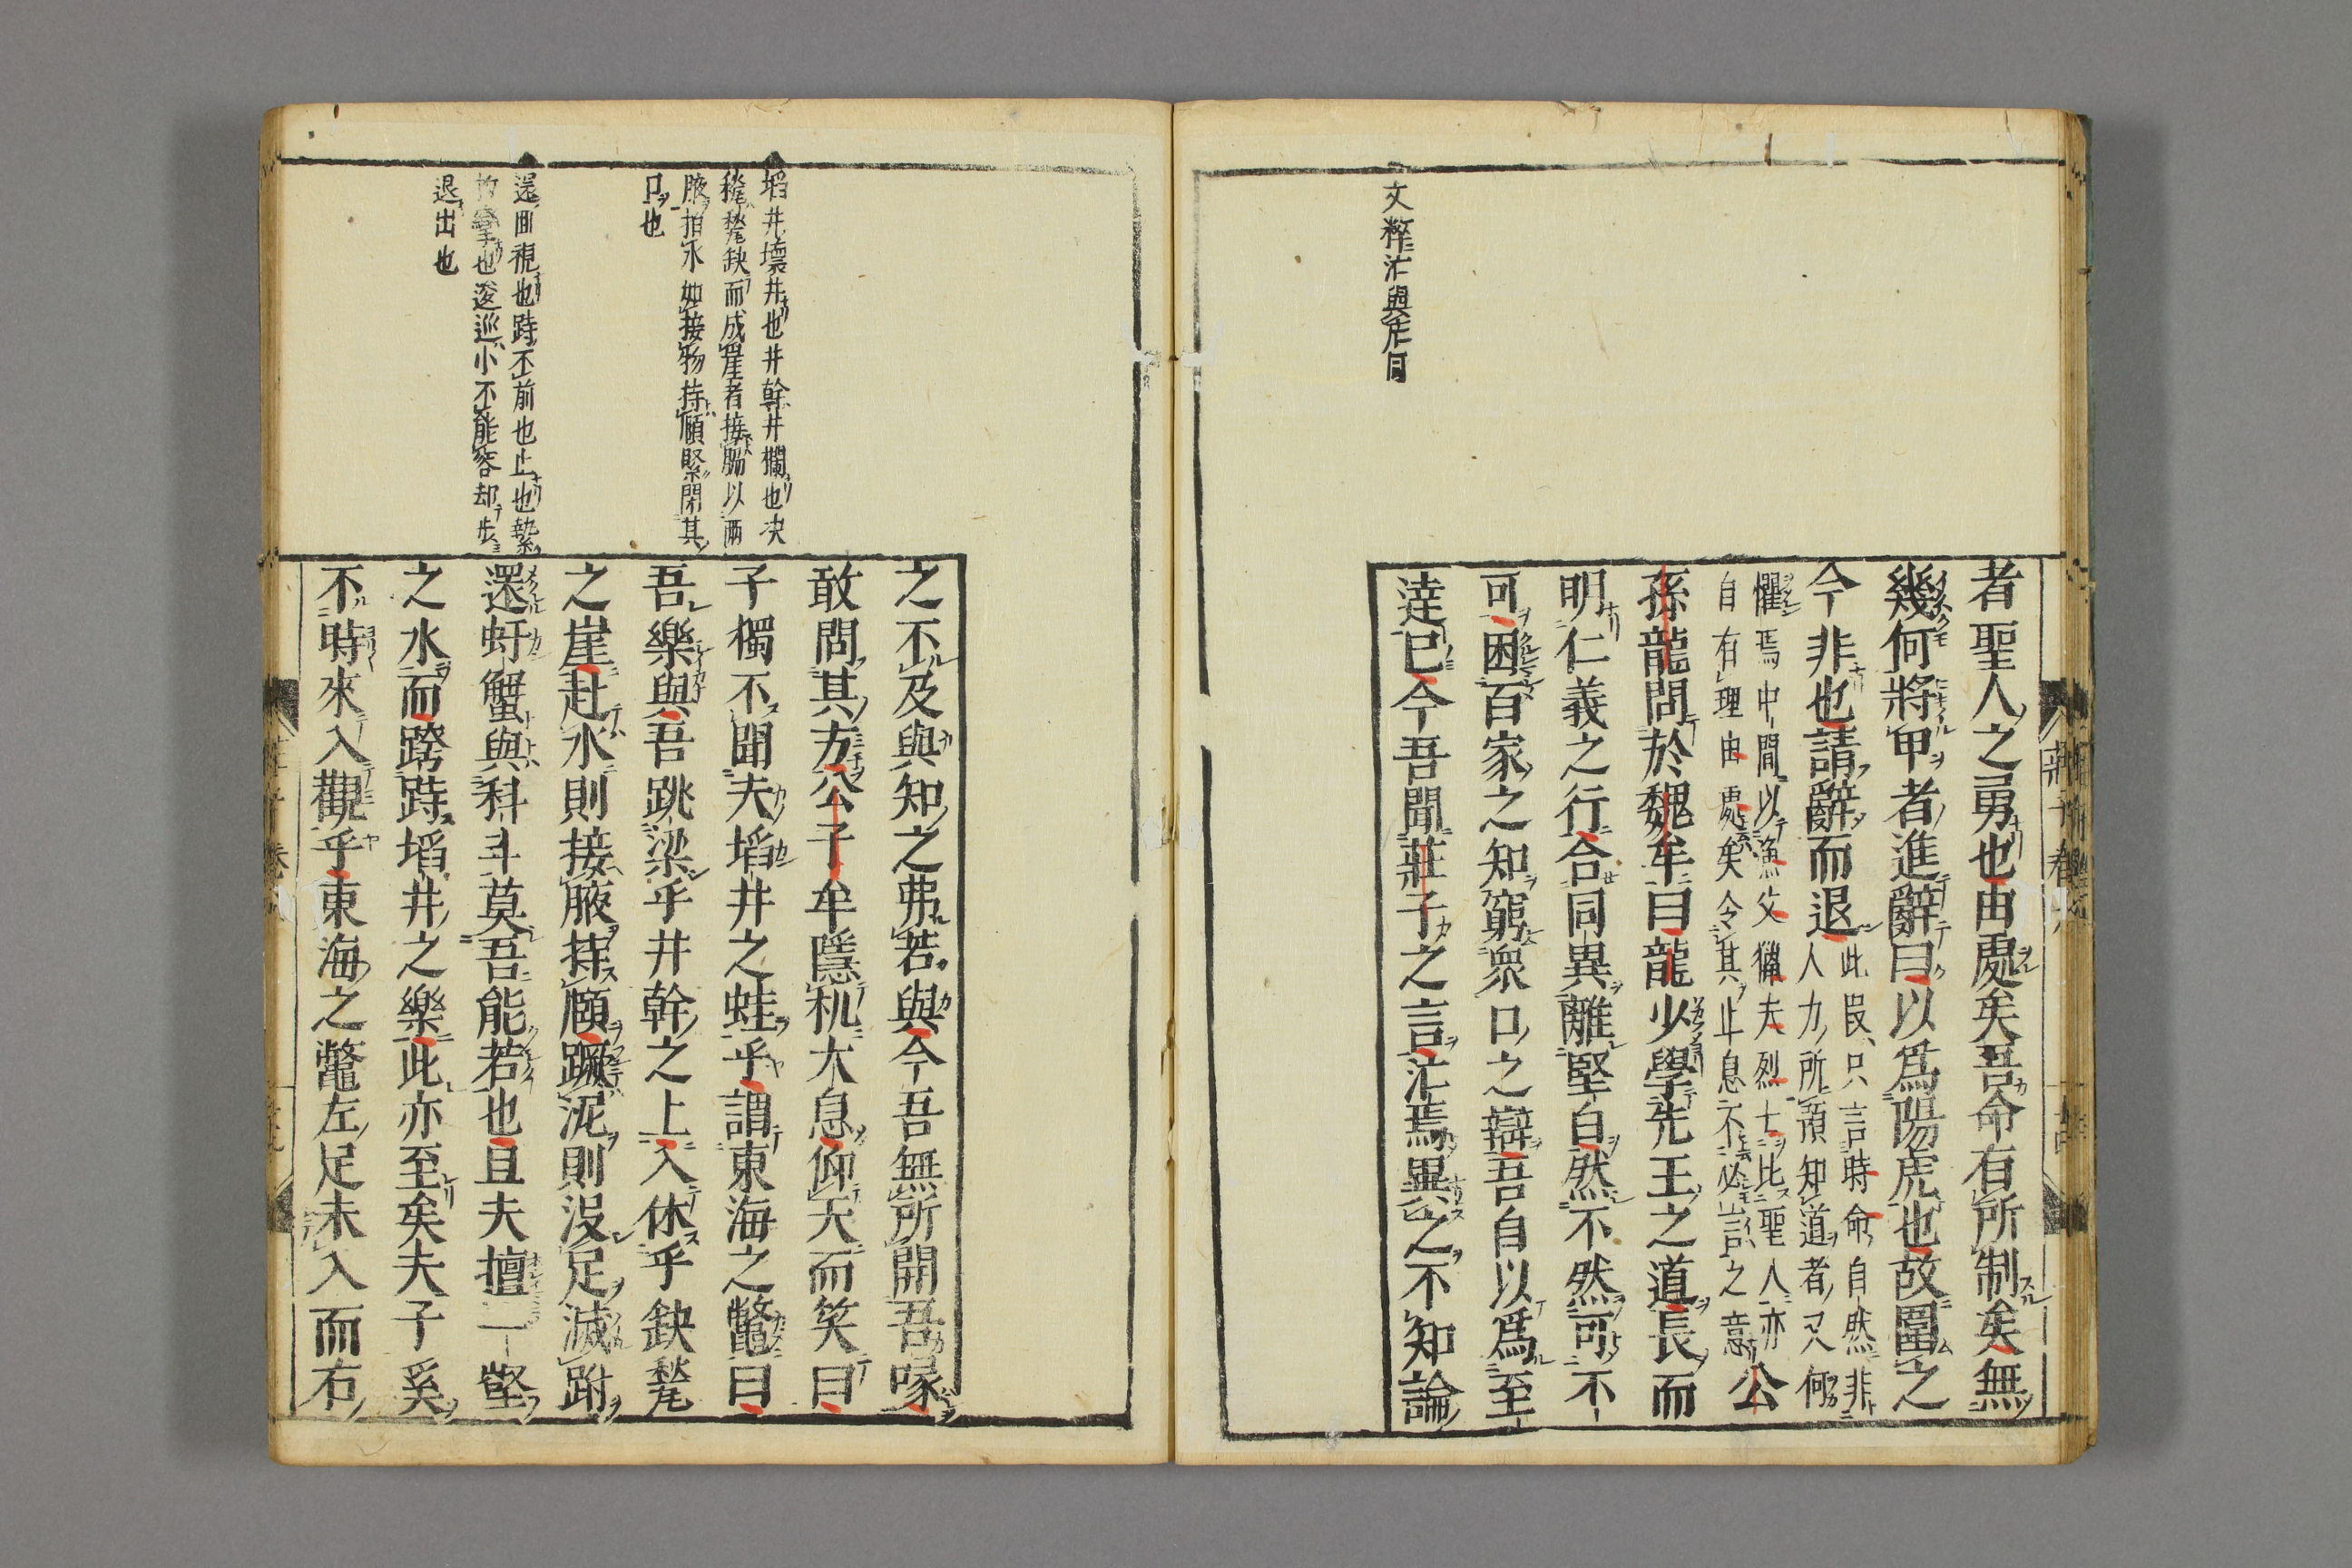 文粹茫與㡯同
者聖人之勇也由處矣吾命有所制矣無
幾何將甲者進辭曰以爲陽虎也故圍之
今非也請辭而退
此段只言時命自然非
人力所預知道者又何
懼焉中間以漁父獵夫烈士比聖人亦
自有理由處矣令其止息不必言之意
公
孫龍問於魏牟曰龍少學先王之道長而
明仁義之行合同異離堅白然不然可不
可困百家之知窮衆口之辯吾自以爲至
達已今吾聞莊子之言茫焉異之不知論
壔井壞井也井幹井欄也決
甃缺而成崖者接腋以兩
腋拍水如接物持頤緊閉其
口也
還回視也跱不前也止也縶
拘攣也逡巡小不能容却步
退出也
之不及與知之弗若與今吾無所開吾喙
敢問其方公子牟隱机大息仰天而笑曰
子獨不聞夫埳井之蛙乎謂東海之鼈曰
吾樂與吾跳梁乎井幹之上入休乎缺甃
之崖赴水則接腋持頤蹶泥則沒足滅跗
還虷蟹與科斗莫吾能若也且夫擅一壑
之水而跨跱埳井之樂此亦至矣夫子奚
不時來入觀乎東海之鼈左足未入而右